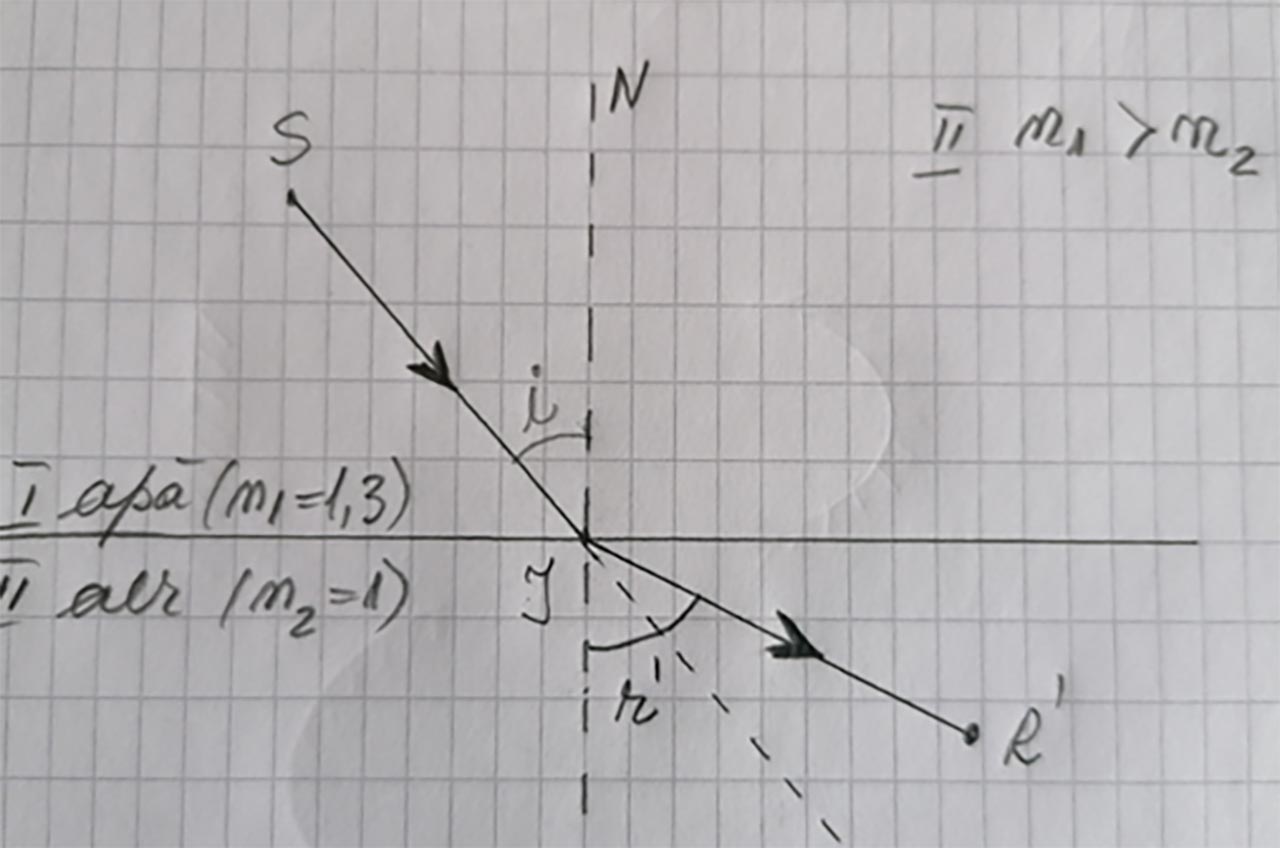 N
S
II n₁ > n₂
i
I apă (n₁=1,3)
II aer (n₂=1)
I
r'
R'